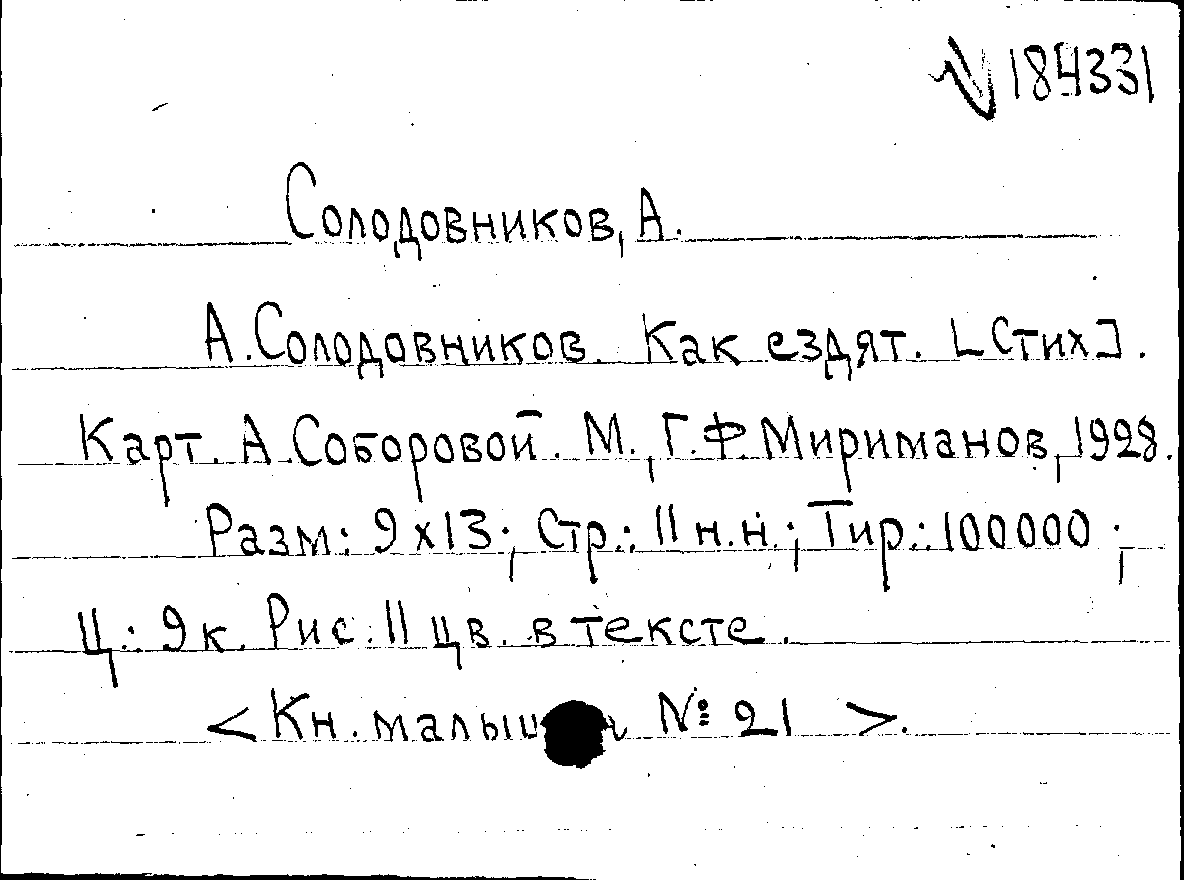 184331
Солодовников, А.
А. Солодовников. Как ездят. [Стих].
Карт. А. Соборовой. М., Г.Ф. Мириманов, 1928.
Разм: 9х13; Стр.: 11 н.н.; Тир.: 100000;
Ц.: 9 к. Рис. 11 цв. в тексте.
<Кн. № 21>.